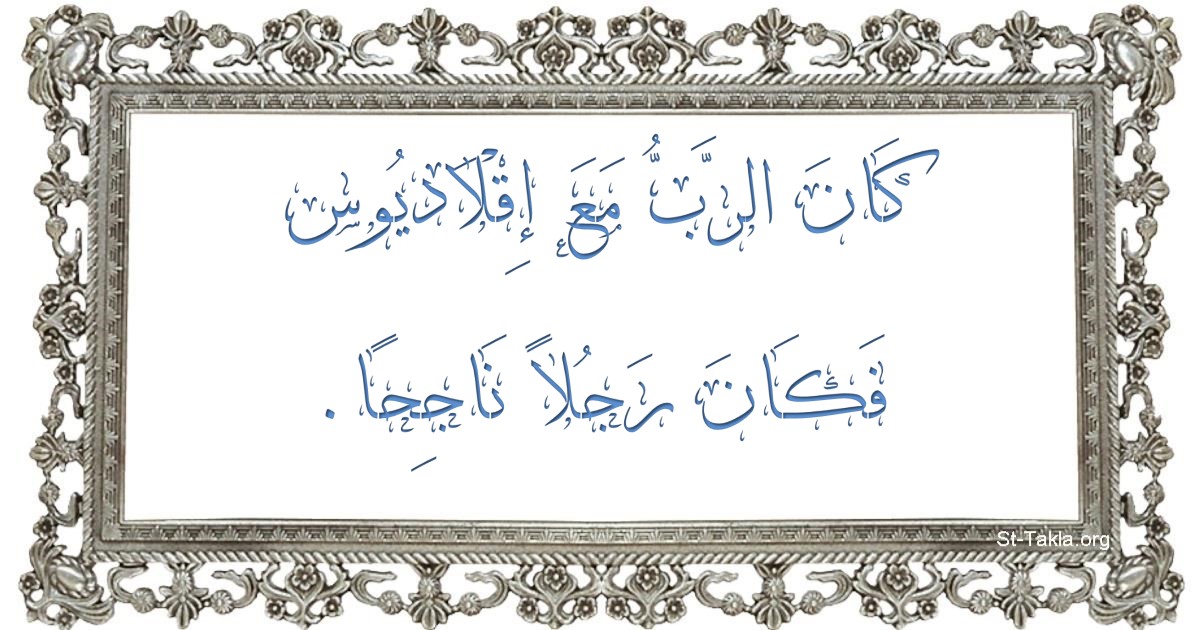 كَانَ الرَّبُّ مَعَ إِقْلَاديُوس
فَكَانَ رَجُلاً نَاجِحًا .
St-Takla.org